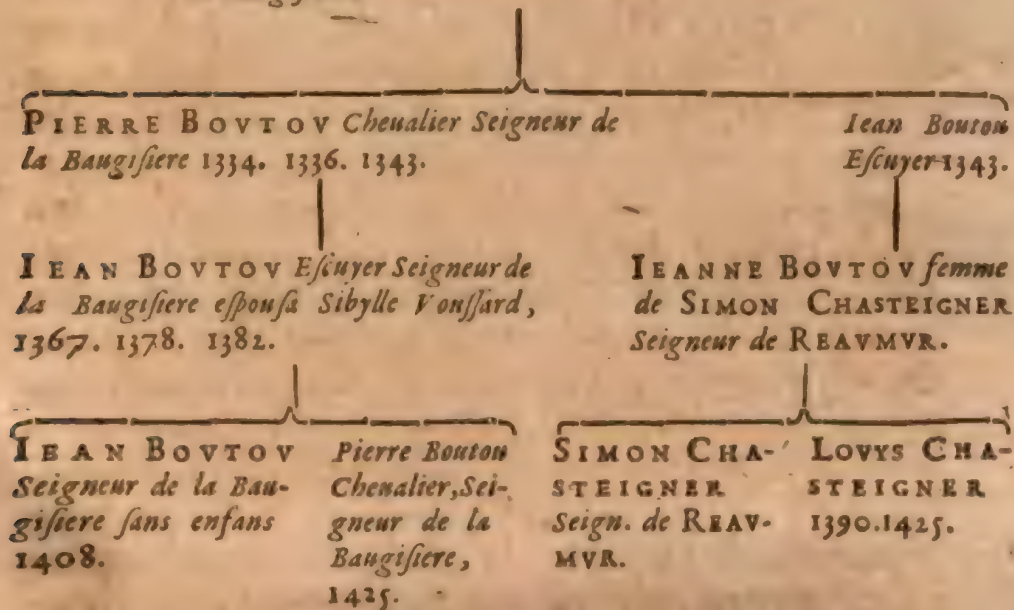 PIERRE BOVTOV Cheualier Seigneur de
la Baugiſiere 1334. 1336. 1343.
Iean Boutou
Eſcuyer 1343.
IEAN BOVTOV Eſcuyer Seigneur de
la Baugiſiere eſpouſa Sibylle Vouſſard,
1367. 1378. 1382.
IEANNE BOVTOV femme
de SIMON CHASTEIGNER
Seigneur de REAVMVR.
IEAN BOVTOV
Seigneur de la Bau-
giſiere ſans enfans
1408.
Pierre Boutou
Cheualier, Sei-
gneur de la
Baugiſiere,
1425.
SIMON CHA-
STEIGNER
Seign. de REAV-
MVR.
LOVYS CHA-
STEIGNER
1390. 1425.